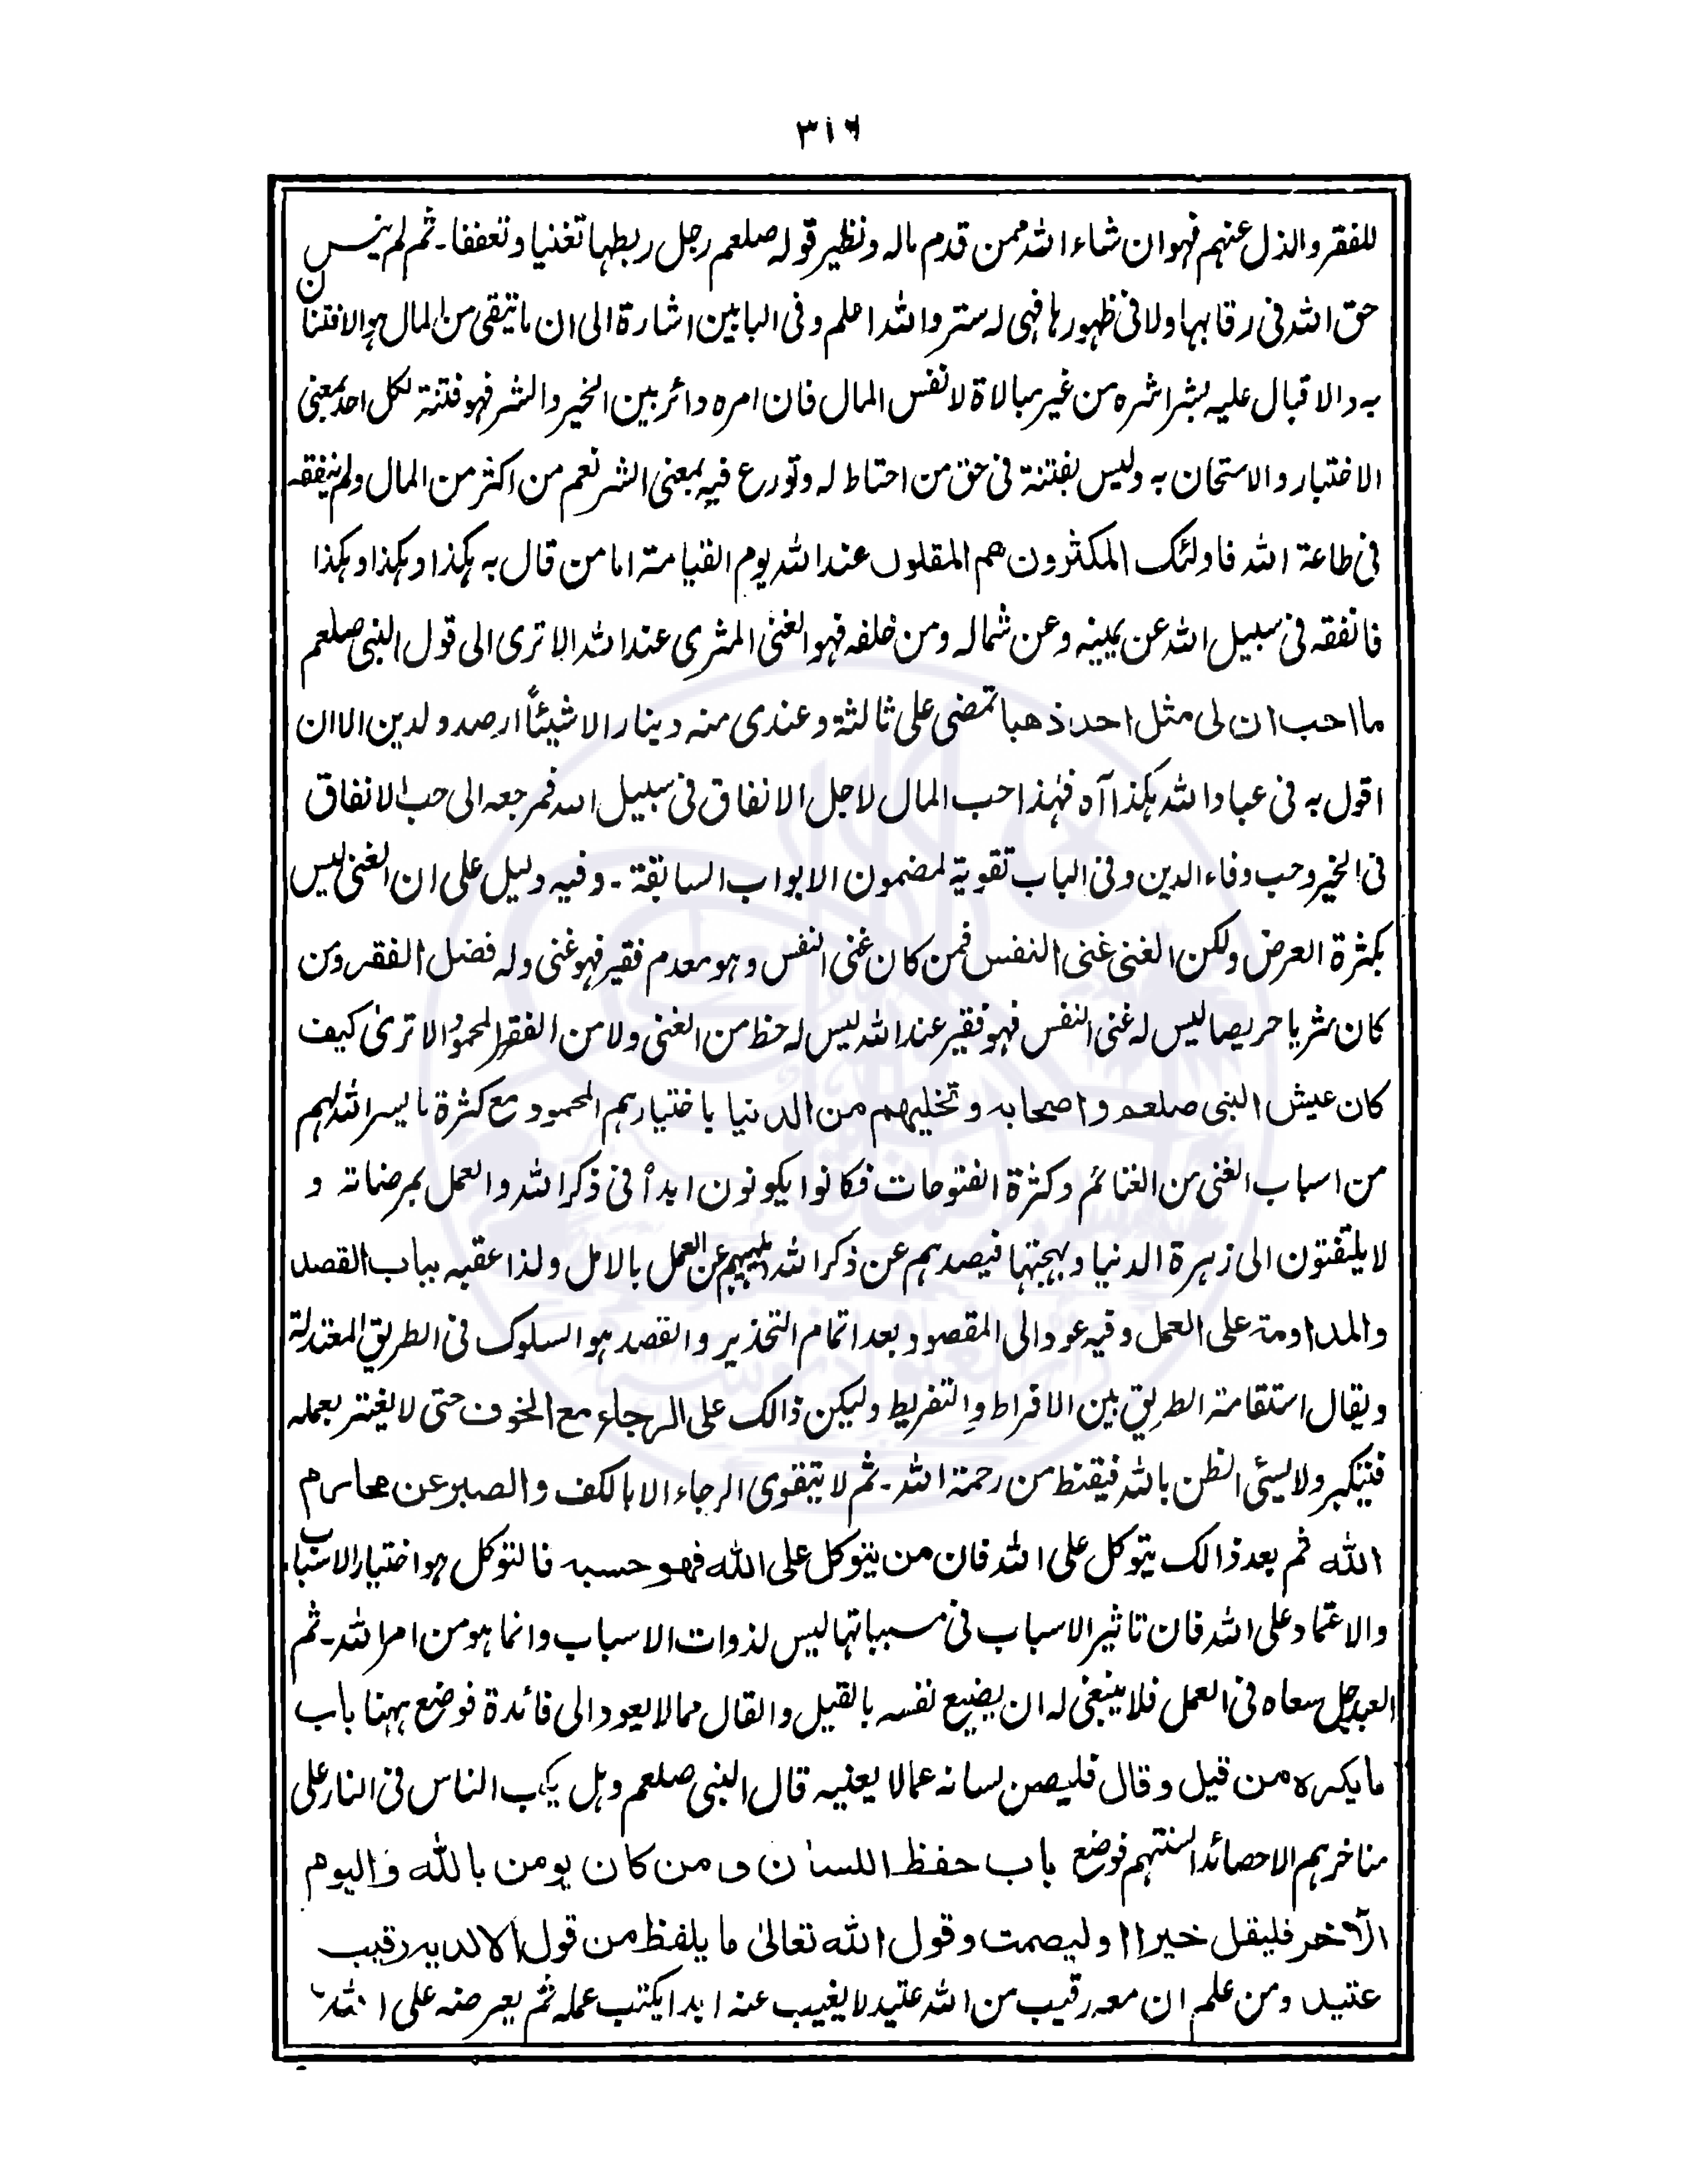 ٣١٦
للفقر والذل عنهم فهو ان شاء الله ممن قدم ماله ونظير قوله صلعم رجل ربطها تغنيا وتعففا ـ ثم لم ينس
حق الله فی رقابها ولا فی ظهورها فهی له ستر والله اعلم وفی البابین اشارة الی ان ما یتقی من المال هو الافتتان
به والاقبال علیه بشراشره من غیر مبالاة لا نفس المال فان امره دائر بین الخیر والشر فهو فتنة لکل احد بمعنی
الاختبار والامتحان به ولیس بفتنة فی حق من احتاط له وتورع فیه بمعنی الشر نعم من اکثر من المال ولم ینفقه
فی طاعة الله فاولئک المکثرون هم المقلون عند الله یوم القیامة اما من قال به هکذا وهکذا وهکذا
فانفقه فی سبیل الله عن یمینه وعن شماله ومن خلفه فهو الغنی المثری عند الله الا تری الی قول النبی صلعم
ما احب ان لی مثل احد ذهبا تمضی علی ثالثة وعندی منه دینار الا شیئاً ارصده لدین الا ان
اقول به فی عباد الله هکذا آه فهٰذا حب المال لاجل الانفاق فی سبیل الله فمرجعه الی حب الانفاق
فی الخیر وحب وفاء الدین وفی الباب تقویة لمضمون الابواب السابقة ـ وفیه دلیل علی ان الغنی لیس
بکثرة العرض ولکن الغنی غنی النفس فمن کان غنی النفس وهو معدم فقیر فهو غنی وله فضل الفقر ومن
کان ثریا حریصا لیس له غنی النفس فهو فقیر عند الله لیس له حظ من الغنی ولا من الفقر المحمود الا تریٰ کیف
کان عیش النبی صلعم واصحابه وتخلیهم من الدنیا باختیارهم المحمود مع کثرة ما یسر الله لهم
من اسباب الغنی من الغنائم وکثرة الفتوحات فکانوا یکونون ابداً فی ذکر الله والعمل بمرضاته و
لا یلتفتون الی زهرة الدنیا وبهجتها فیصدهم عن ذکر الله یلهیهم عن العمل بالامل ولذا عقبه بباب القصد
والمداومة علی العمل وفیه عود الی المقصود بعد اتمام التحذیر والقصد هو السلوک فی الطریق المعتدلة
ویقال استقامة الطریق بین الافراط والتفریط ولیکن ذالک علی الرجاء مع الخوف حتی لا یغتر بعمله
فیتکبر ولا یسیئ الظن بالله فیقنط من رحمة الله ـ ثم لا یتقوی الرجاء الا بالکف والصبر عن محارم
الله ثم بعد ذالک یتوکل علی الله فان من یتوکل علی الله فهو حسبه فالتوکل هو اختیار الاسباب
والاعتماد علی الله فان تاثیر الاسباب فی مسبباتها لیس لذوات الاسباب وانما هو من امر الله ـ ثم
العبد جل سعاه فی العمل فلا ینبغی له ان یضیع نفسه بالقیل والقال مما لا یعود الی فائدة فوضع ههنا باب
ما یکره من قیل وقال فلیصن لسانه عما لا یعنیه قال النبی صلعم وهل یکب الناس فی النار علی
مناخرهم الا حصائد السنتهم فوضع باب حفظ اللسان ومن کان یومن بالله والیوم
الآخر فلیقل خیرا او لیصمت وقول الله تعالیٰ ما یلفظ من قول الا لدیه رقیب
عتید ومن علم ان معه رقیب من الله عتید لا یغیب عنه ابدا یکتب عمله ثم یعرضه علی الله